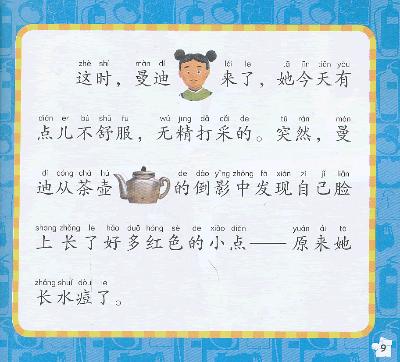 zhè shí màn dí lái le tā jīn tiān yǒu
这时，曼迪来了，她今天有
diǎn er bù shū fu wú jīng dǎ cǎi de tū rán màn
点儿不舒服，无精打采的。突然，曼
dí cóng chá hú de dào yǐng zhōng fā xiàn zì jǐ liǎn
迪从茶壶的倒影中发现自己脸
shang zhǎng le hǎo duō hóng sè de xiǎo diǎn yuán lái tā
上长了好多红色的小点——原来她
zhǎng shuǐ dòu le
长水痘了。
9